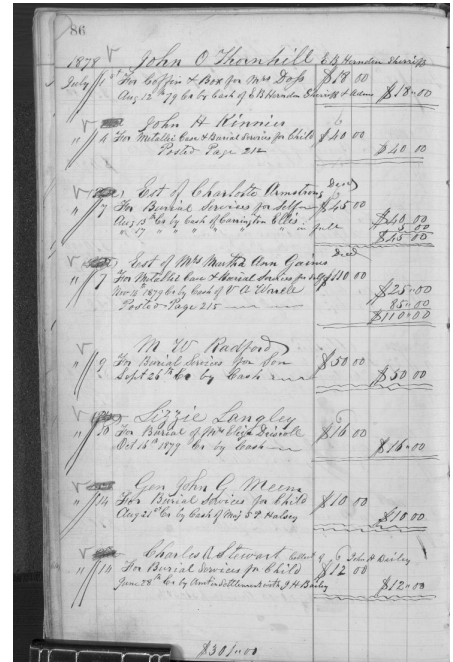 86
1879 John O Thornhill E B Herndon Sheriff
July 1st For Coffin & Box for Mrs Doss $18 00
Aug 12th 79 Cr by Cash of E B Herndon Sheriff & Adm $18.00
John H Kinnier
" 4 For Metallic Case & Burial Services for Child $40 00
Posted Page 212 $40 00
Est of Charlotte Armstrong Decd
" 7 For Burial Services for Self $45 00
Aug 15th Cr by Cash of Carrington Ellis $40.00
" 17 " " " " " " in full 5.00
$45 00
Est of Mrs Martha Ann Gaines Decd
" 7 For Metallic Case & Burial Services for Self $110 00
Nov 1879 Cr by Cash of $25.00
Posted Page 215 85.00
$110.00
M W Radford
" 9 For Burial Services for Son $50 00
Sept 25th Cr by Cash $50 00
Lizzie Langley
" 10 For Burial of Mrs Eliza Driscoll $16 00
Oct 16th 1879 Cr by Cash $16.00
Gen John G Meem
" 14 For Burial Services for Child $10 00
Aug 21st Cr by Cash of Maj S P Halsey $10.00
Charles A Stewart John H Bailey
" 14 For Burial Services for Child $12 00
June 28th Cr by settlement with J H Bailey $12.00
$301.00